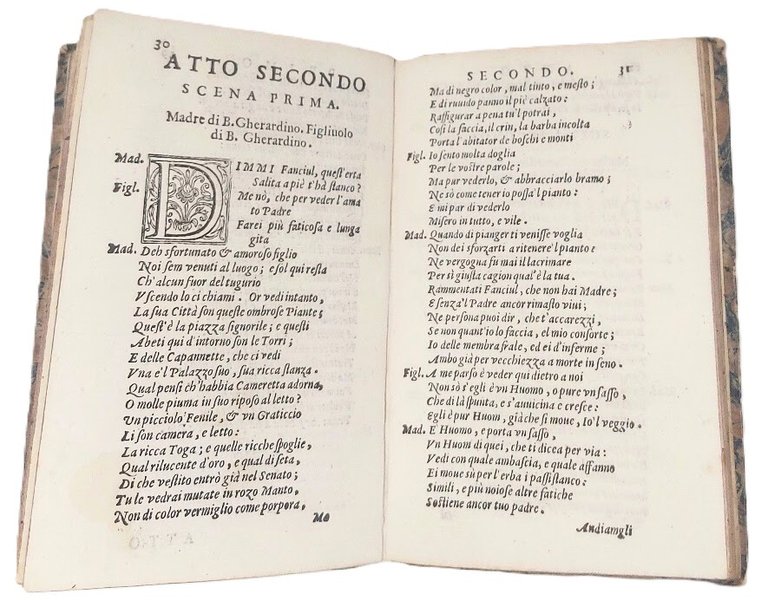 30
ATTO SECONDO
SCENA PRIMA.
Madre di B. Gherardino. Figliuolo
di B. Gherardino.
Mad. DIMMI Fanciul, quest'erta
Salita a piè t'hà stanco?
Figl. Me nò, che per veder l'ama
to Padre
Farei più faticosa e lunga
gita
Mad. Deh sfortunato & amoroso figlio
Noi sem venuti al luogo; e sol qui resta
Ch'alcun fuor del tugurio
Vscendo lo ci chiami. Or vedi intanto,
La sua Città son queste ombrose Piante;
Quest'è la piazza signorile; e questi
Abeti qui d'intorno son le Torri;
E delle Capannette, che ci vedi
Vna e'l Palazzo suo, sua ricca stanza.
Qual pensi ch'habbia Cameretta adorna,
O molle piuma in suo riposo al letto?
Un picciolo Fenile, & vn Graticcio
Li son camera, e letto:
La ricca Toga; e quelle ricche spoglie,
Qual rilucente d'oro, e qual di seta,
Di che vestito entrò già nel Senato;
Tu le vedrai mutate in rozo Manto,
Non di color vermiglio come porpora,
Ma
SECONDO. 31
Ma di negro color, mal tinto, e mesto;
E di ruuido panno il piè calzato:
Raffigurar a pena tu'l potrai,
Così la faccia, il crin, la barba incolta
Porta l'abitator de boschi e monti
Figl. Io sento molta doglia
Per le vostre parole;
Ma pur vederlo, & abbracciarlo bramo;
Ne sò come tener io possa'l pianto:
E mi par di vederlo
Misero in tutto, e vile.
Mad. Quando di pianger ti venisse voglia
Non dei sforzarti a ritenere'l pianto:
Ne vergogna fu mai il lacrimare
Per sì giusta cagion qual'è la tua.
Rammentati Fanciul, che non hai Madre;
E senza'l Padre ancor rimasto viui;
Ne persona puoi dir, che t'accarezzi,
Se non quant'io lo faccia, el mio consorte;
Io delle membra frale, ed ei d'inferme;
Ambo già per vecchiezza a morte in seno.
Figl. A me parso è veder qui dietro a noi
Non sò s'egli è vn Huomo, o pure vn sasso,
Che di là spunta, e s'auuicina e cresce:
Egli è pur Huom, già che si moue, Io'l veggio.
Mad. E' Huomo, e porta vn sasso,
Vn Huom di quei, che ti dicea per via:
Vedi con quale ambascia, e quale affanno
Ei moue sù per l'erba i passi stanco:
Simili, e più noiose altre fatiche
Sostiene ancor tuo padre.
Andiamgli